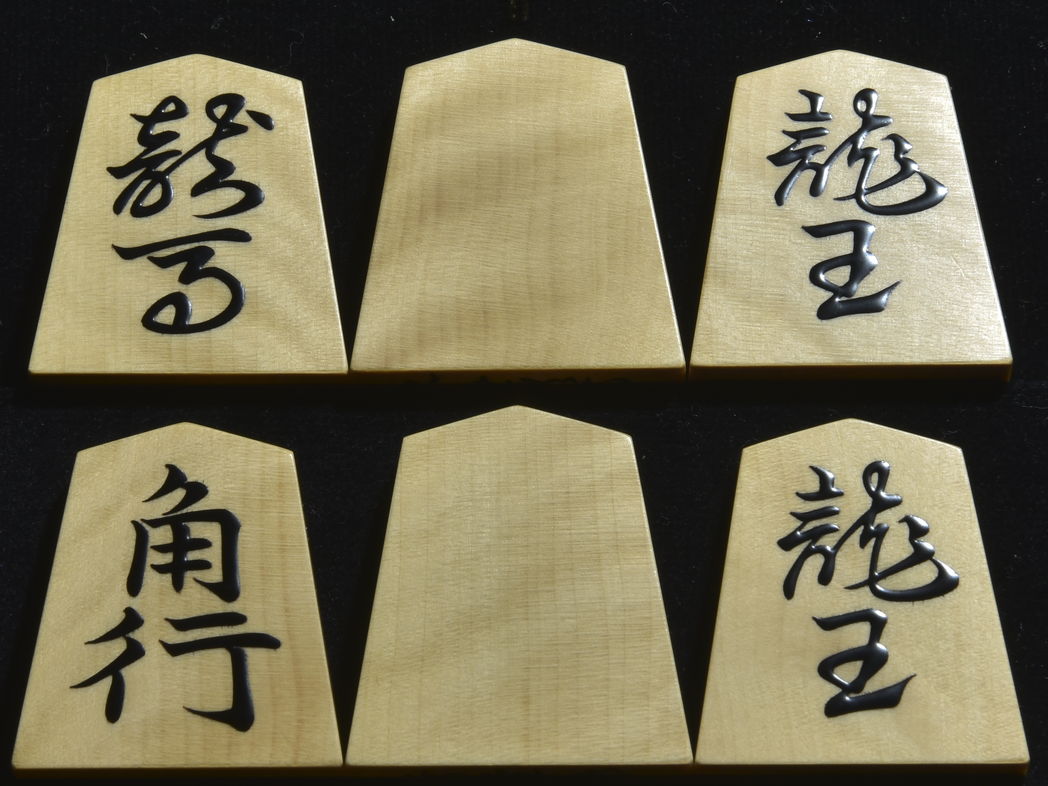 龍馬
龍王
角行
龍王